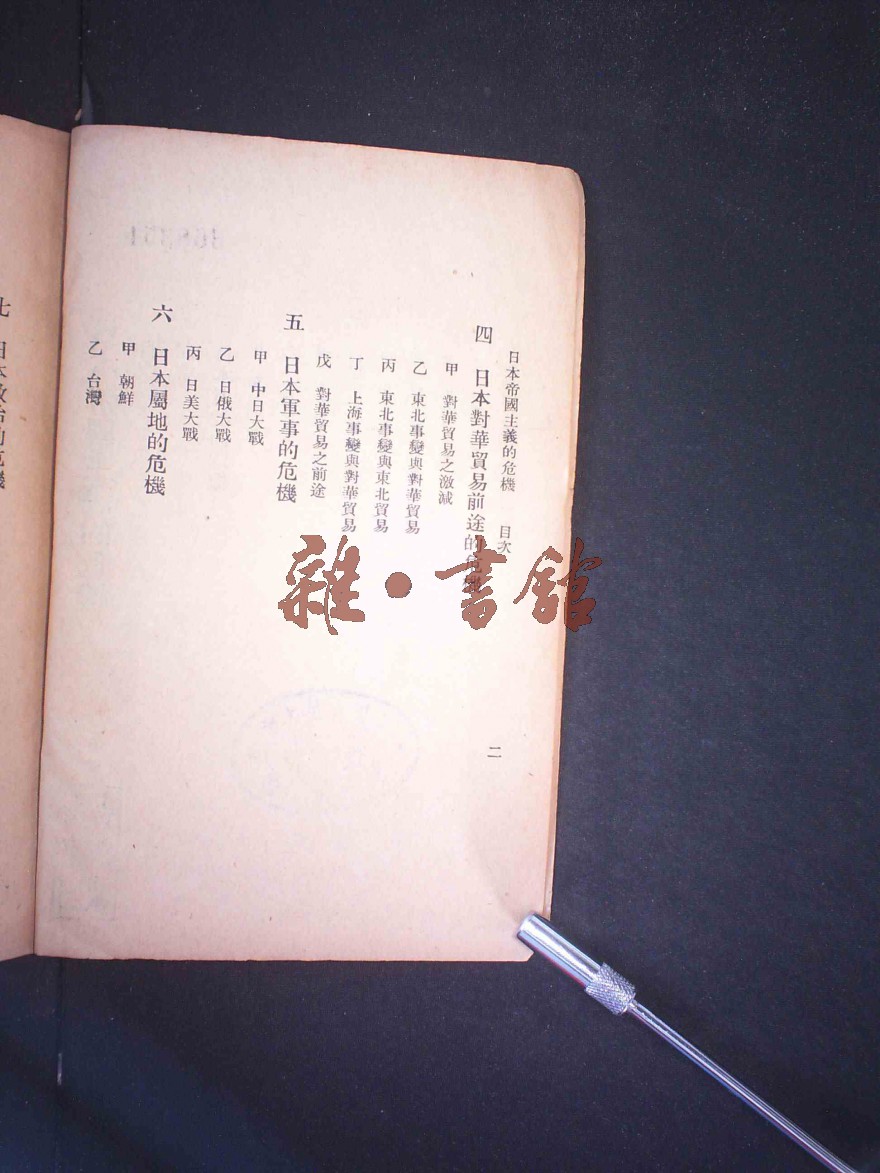 日本帝國主義的危機　目次
二
四　日本對華貿易前途的危機
甲　對華貿易之激減
乙　東北事變與對華貿易
丙　東北事變與東北貿易
丁　上海事變與對華貿易
戊　對華貿易之前途
五　日本軍事的危機
甲　中日大戰
乙　日俄大戰
丙　日美大戰
六　日本屬地的危機
甲　朝鮮
乙　台灣
七　日本政治的危機
雜·書館